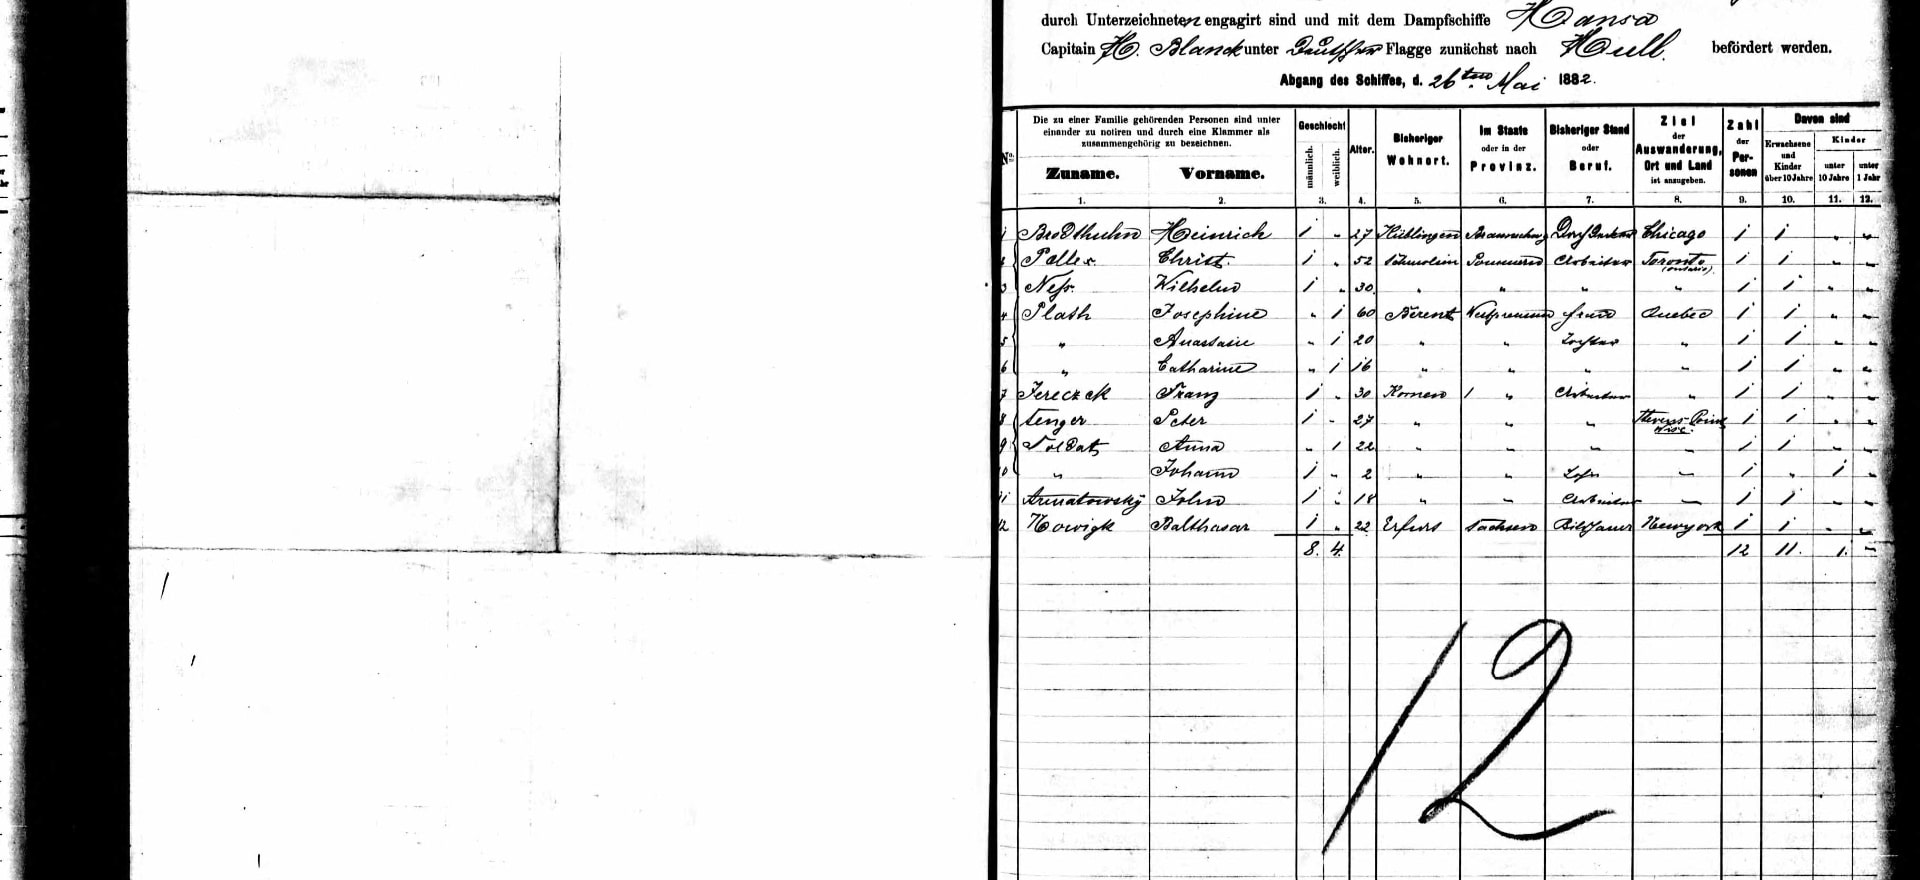 durch Unterzeichneten engagirt sind und mit dem Dampfschiffe Hansa
Capitain H. Blanck unter Deutscher Flagge zunächst nach Hull. befördert werden.
Abgang des Schiffes, d. 26ten Mai 1882.
No. Die zu einer Familie gehörenden Personen sind unter einander zu notiren und durch eine Klammer als zusammengehörig zu bezeichnen. Geschlecht Alter. Bisheriger Wohnort. Im Staate oder in der Provinz. Bisheriger Stand oder Beruf. Ziel der Auswanderung, Ort und Land ist anzugeben. Zahl der Personen Davon sind
Zuname. Vorname. männlich. weiblich. Erwachsene und Kinder über 10 Jahre Kinder unter 10 Jahre unter 1 Jahr
1. 2. 3. 4. 5. 6. 7. 8. 9. 10. 11. 12.
1 Heinrich 1 " 27 Braunschwg Chicago 1 1 " "
2 Christ. 1 " 52 Pommern Arbeiter Toronto (Ontario) 1 1 " "
3 Neß. Wilhelm 1 " 30 " " " " 1 1 " "
4 Plath Josephine " 1 60 Berent Westpreussen Frau Quebec 1 1 " "
5 " " 1 20 " " Tochter " 1 1 " "
6 " Catharine " 1 16 " " " " 1 1 " "
7 Jereczek Franz 1 " 30 " Arbeiter " 1 1 " "
8 Peter 1 " 27 " " " Stevens Point Wisc. 1 1 " "
9 Soldat Anna " 1 22 " " " 1 1 " "
10 " Johann 1 " 2 " " Sohn " 1 " 1 "
11 John 1 " 18 " " Arbeiter " 1 1 " "
12 Balthasar 1 " 22 Erfurt Sachsen Bildhauer Newyork 1 1 " "
8. 4. 12 11. 1. "
12